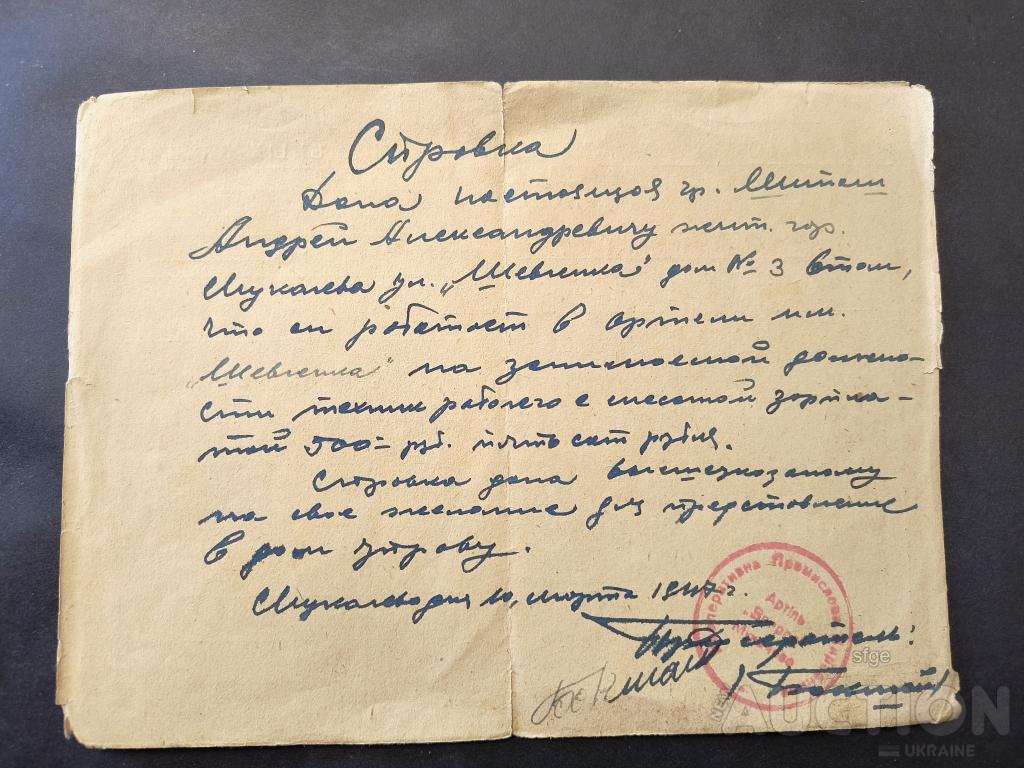 Справка
Дана настоящая гр. Миташ
Андрей Александревичу жит. гор.
Мукачева ул. „Шевченка" дом № 3 втом,
что он работает в артели им.
„Шевченка" на занимаемой должно-
сти техник рабочего с месячной зарпла-
той 500= руб. пятьсот рубля.
Справка дана вышеуказаному
на свое желание для представление
в дом управу.
Мукачево дня 10, марта 1947 г.
Председатель:
Бокшай
/Бокшай/
Промислова
Артіль
sfge
AUCTION
UKRAINE